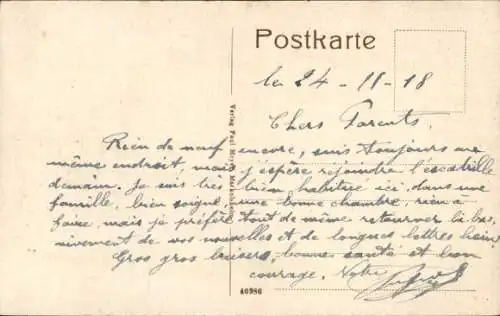 Postkarte
le 24-11-18
Chers Parents,
Rien de neuf encore, suis toujours au
même endroit, mais j'espère rejoindre l'escadrille
demain. Je suis très bien habitué ici, dans une
famille, bien soigné, une bonne chambre, rien à
faire, mais je préfère tout de même retourner là bas,
vivement de vos nouvelles et de longues lettres hein,
Gros gros baisers, bonne santé et bon
courage. Votre
Verlag Paul
40986